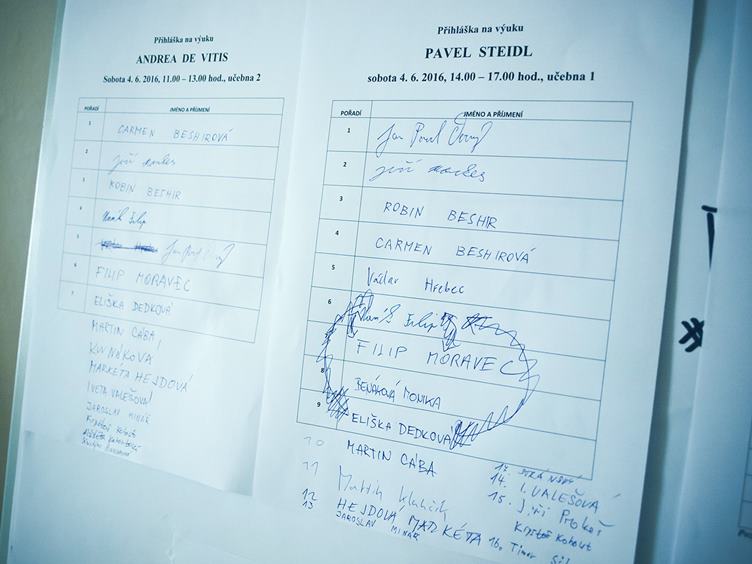 Přihláška na výuku
ANDREA DE VITIS
Sobota 4. 6. 2016, 11.00 – 13.00 hod., učebna 2
POŘADÍ JMÉNO A PŘÍJMENÍ
1 CARMEN BESHIROVÁ
2 Jiří
3 ROBIN BESHIR
4 Filip
5 Jan Pavel
6 FILIP MORAVEC
7 ELIŠKA DEDKOVÁ
MARTIN CÁBA
KUNÁKOVA
MARKÉTA HEJDOVÁ
IVETA VALEŠOVÁ
JAROSLAV MINÁŘ
Přihláška na výuku
PAVEL STEIDL
sobota 4. 6. 2016, 14.00 – 17.00 hod., učebna 1
POŘADÍ JMÉNO A PŘÍJMENÍ
1 Jan Pavel
2 Jiří
3 ROBIN BESHIR
4 CARMEN BESHIROVÁ
5 Václav Hrebec
6 Filip
FILIP MORAVEC
8 BENÁKOVÁ MONIKA
9 ELIŠKA DEDKOVÁ
10 MARTIN CÁBA
11 Martin
12 HEJDOVÁ MARKÉTA
13 JAROSLAV MINÁŘ
14. I. VALEŠOVÁ
15. Jiří Prokeš
Kryštof Kohout
16. Timur